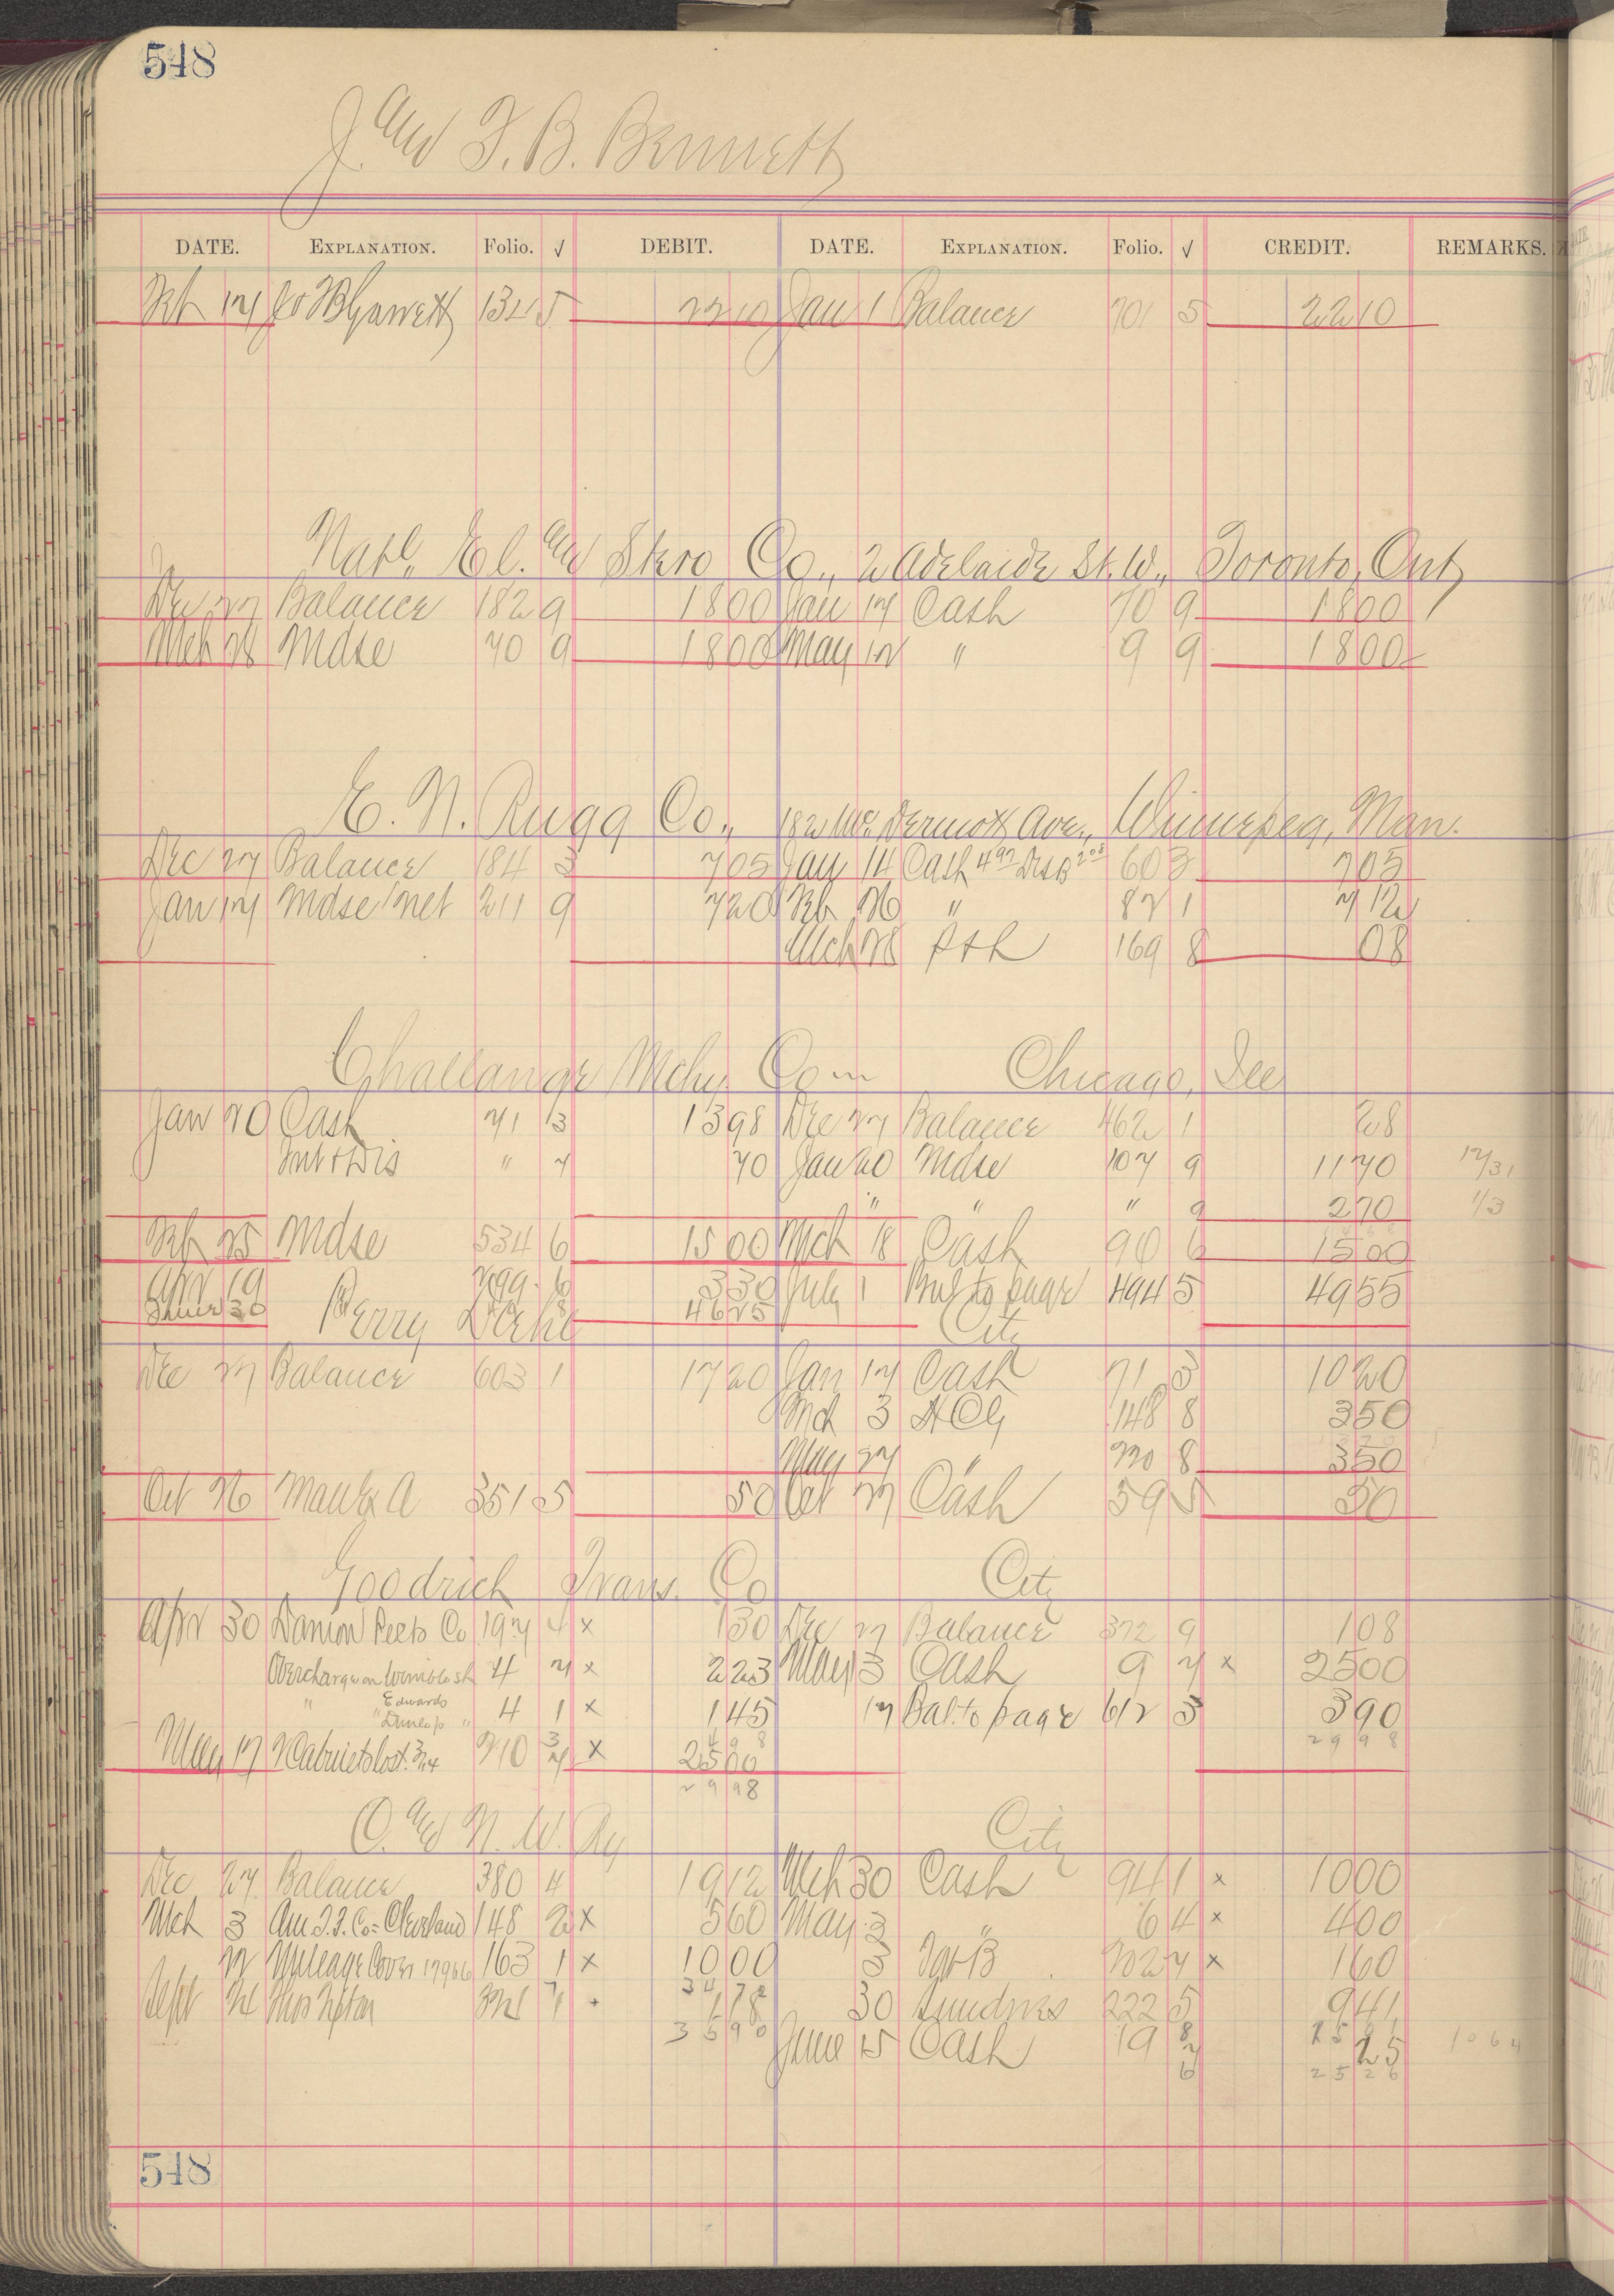 548
J. and F. B. Bennett
DATE. EXPLANATION. Folio. √ DEBIT. DATE. EXPLANATION. Folio. √ CREDIT. REMARKS.
22 10 Jan 1 Balance 701 5 22 10
Natl. El. and Stero Co., 2 Adelaide St. W., Toronto, Ont
Dec 27 Balance 182 9 18 00 Jan 17 Cash 70 9 18 00
Mch 28 Mdse 70 9 18 00 May 12 " 9 9 18 00
E. N. Rugg Co., 182 McDermott Ave., Winnepeg, Man.
Dec 27 Balance 184 3 7 05 Jan 14 Cash 4 97 Disb 2 08 60 3 7 05
Jan 17 Mdse net 211 9 7 20 Feb 26 " 82 1 7 12
Mch 28 P+L 169 8 08
Challange Mchy Com Chicago, Ill
Jan 20 Cash 71 3 13 98 Dec 27 Balance 462 1 28
Int + Dis " 7 70 Jan 20 Mdse 107 9 11 70 12/31
" " " 9 2 70 1/3
Feb 25 Mdse 534 6 15 00 Mch 18 Cash 90 6 15 00
Apr 19 299 6 3 30 July 1 Bal to page 494 5 49 55
June 30 46 25
Perry City
Dec 27 Balance 603 1 17 20 Jan 17 Cash 71 3 10 20
Mch 3 HCG 148 8 3 50
May 27 " 220 8 3 50
Oct 26 351 5 50 Oct 27 Cash 59 5 50
Goodrich Trans. Co City
Apr 30 Damon Peets Co 197 4 x 1 30 Dec 27 Balance 372 9 1 08
Overcharge on 4 7 x 2 23 May 3 Cash 9 7 x 25 00
" " Edwards 4 1 x 1 45 17 Bal. to page 612 3 3 90
" Dunlop "
4 98 29 98
May 17 2 Cabinets lost 210 3 7 x 25 00
29 98
C. and N. W. Ry City
Dec 27 Balance 380 4 19 12 Mch 30 Cash 94 1 x 10 00
Mch 3 Am. T. F. Co = Cleveland 148 2 x 5 60 May 3 " 6 4 x 4 00
12 Mileage Cover 17966 163 1 x 10 00 3 202 7 x 1 60
34 72
Sept 1 78 30 Sundries 222 5 9 41
35 90 June 15 Cash 19 8 7 6 25 1064
25 26
548